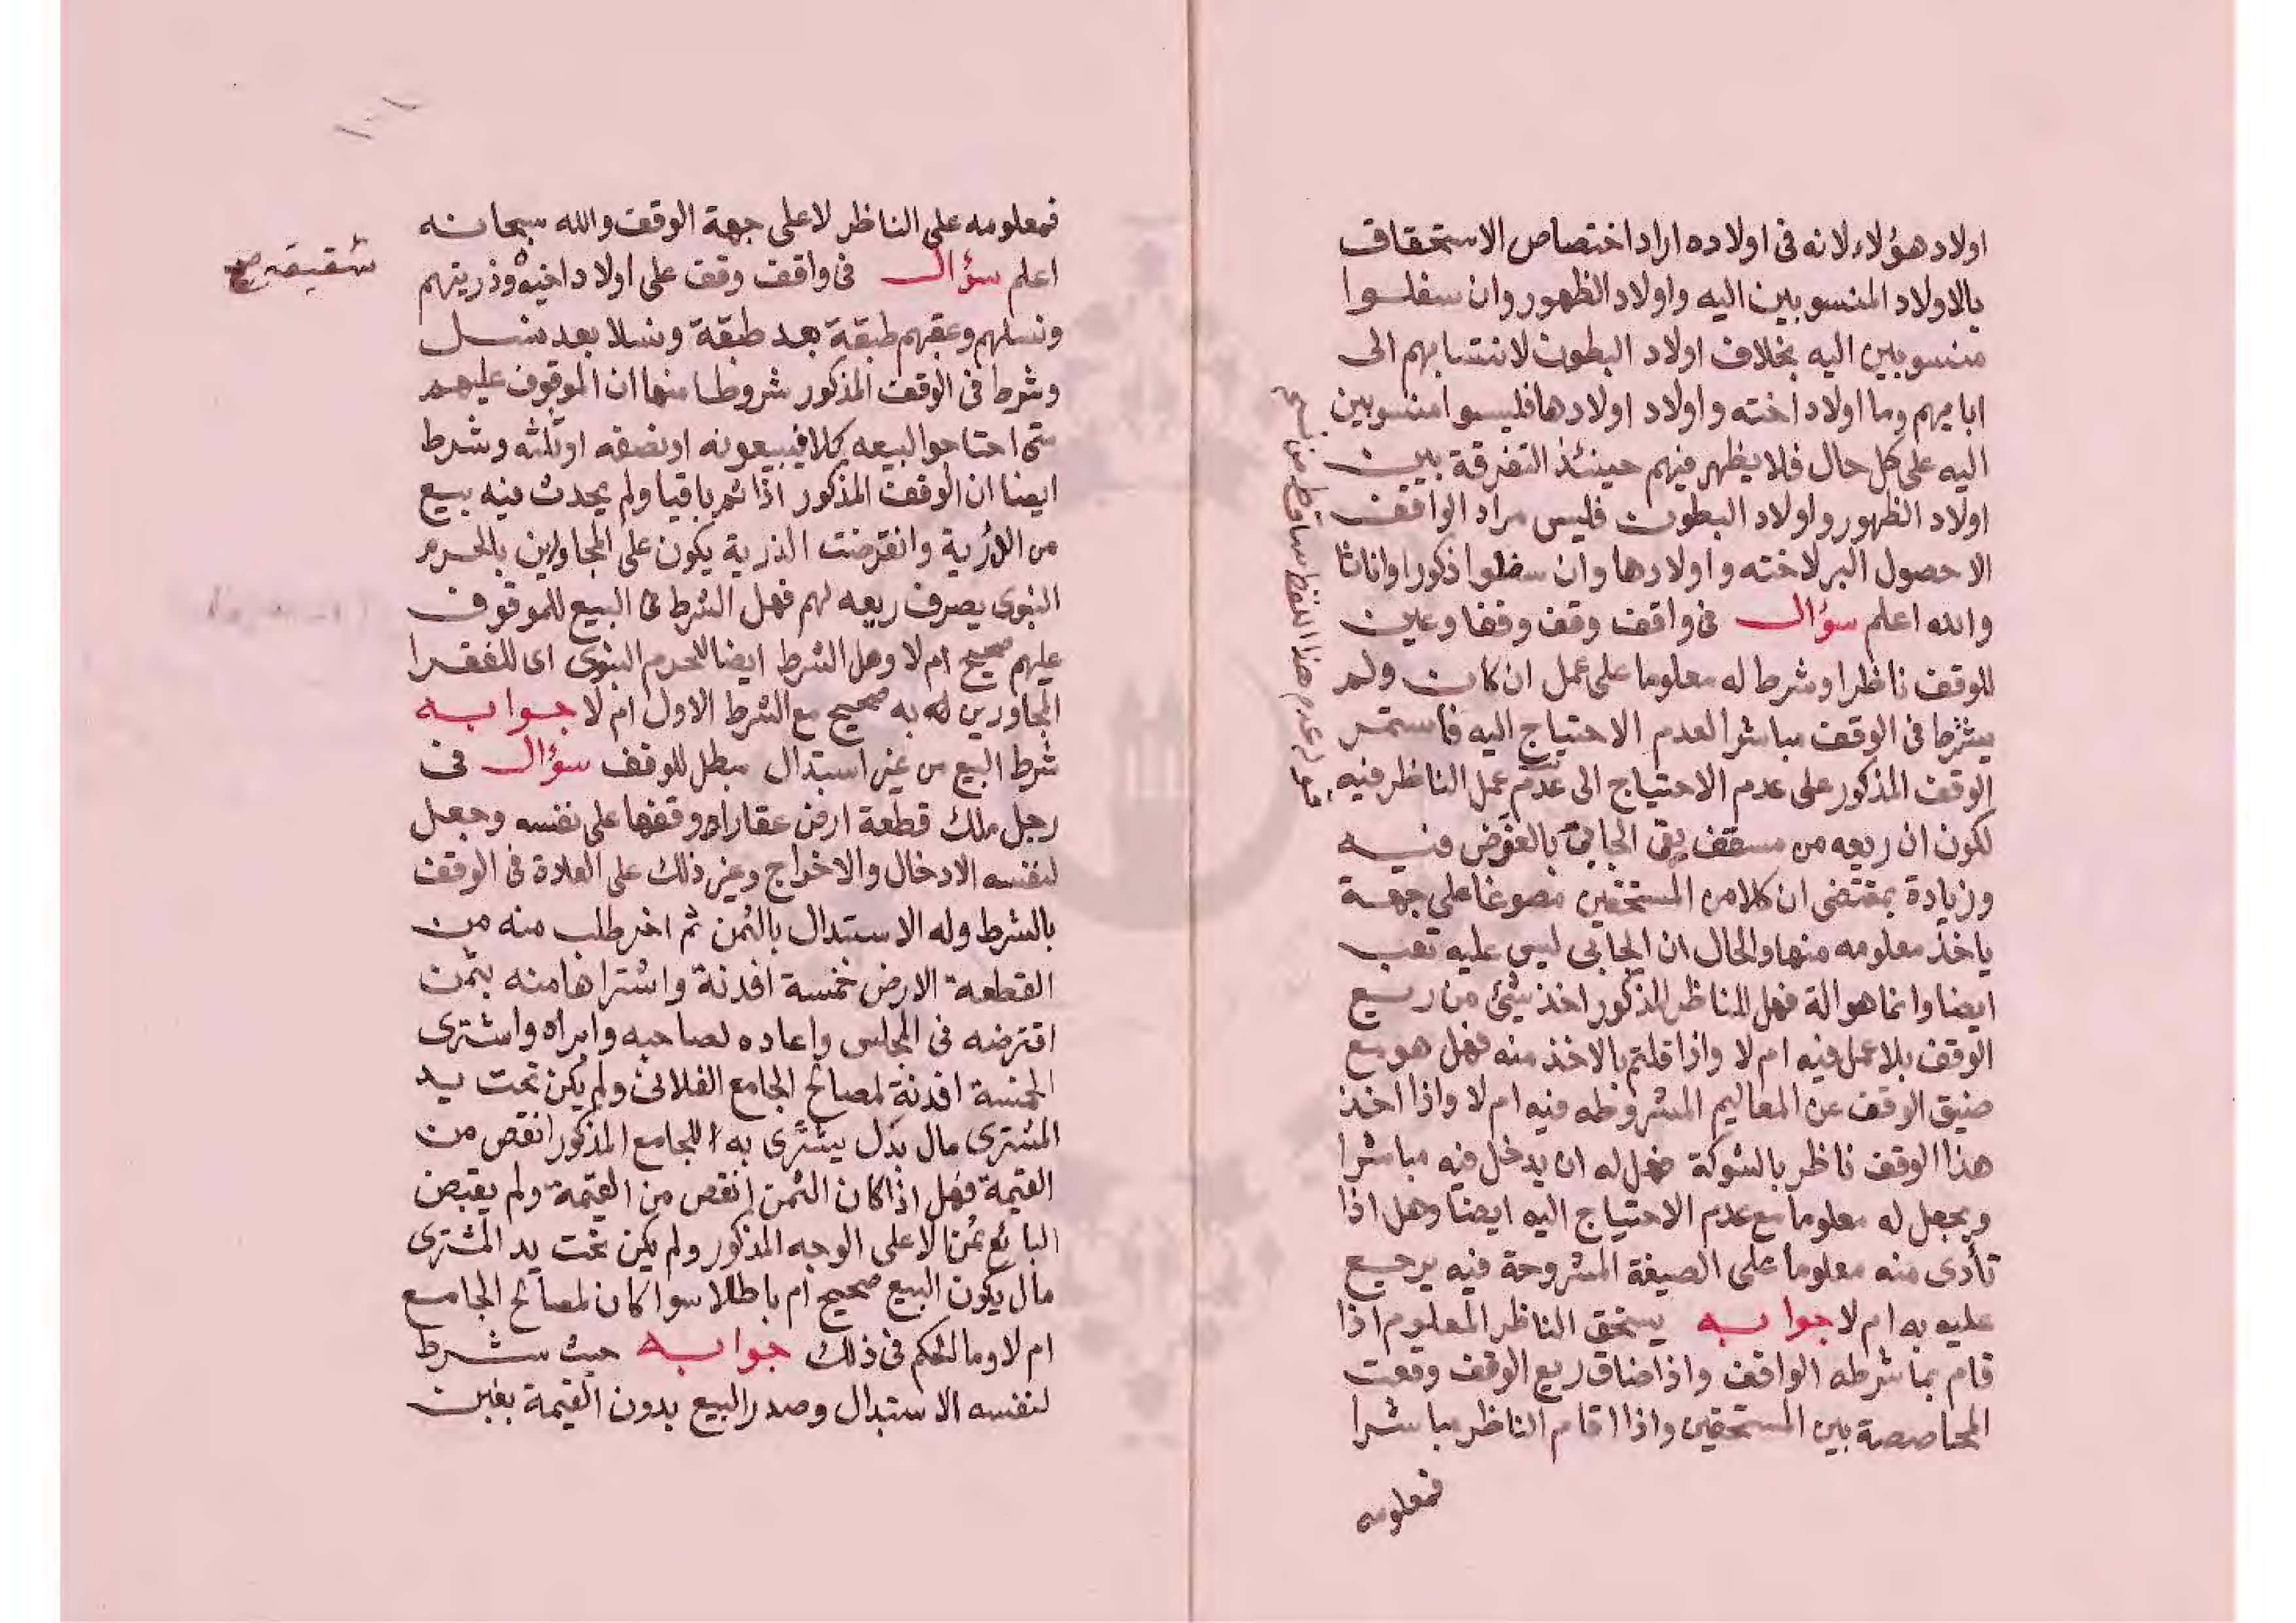 اولاد هؤلاء لانه فى اولاده اراد اختصاص الاستحقاق
بالاولاد المنسوبين اليه واولاد الظهور وان سفلوا
منسوبين اليه بخلاف اولاد البطون لانتسابهم الى
ابايهم وما اولاد اخته واولاد اولادها فليسوا منسوبين
اليه على كل حال فلا يظهر فيهم حينئذ التفرقة بين
اولاد الظهور واولاد البطون فليس مراد الواقف
الا حصول البر لاخته واولادها وان سفلوا ذكورا واناثا
والله اعلم سؤال فى واقف وقف وقفا وعين
للوقف ناظرا وشرط له معلوما على عمل ان كان ولم
يشرط فى الوقف مباشرا لعدم الاحتياج اليه فاستمر
الوقف المذكور على عدم الاحتياج الى عدم عمل الناظر فيه
لكون ان ريعه من مسقف الجابى فيه
وزيادة بمقتضى ان كلا من المستحقين على جهة
ياخذ معلومه منها والحال ان الجابى ليس عليه تعب
ايضا وانما هو الة فهل للناظر المذكور اخذ شئ من ريع
الوقف بلا عمل فيه ام لا واذا قلتم بالاخذ منه فهل هو مع
ضيق الوقف عن المعاليم المشروطه فيه ام لا واذا اخذ
هذا الوقف ناظر بالشوكة فهل له ان يدخل فيه مباشرا
ويجعل له معلوما مع عدم الاحتياج اليه ايضا وهل اذا
تأدى منه معلوما على الصيغة المشروحة فيه يرجع
عليه به ام لا جوابه يستحق الناظر المعلوم اذا
قام بما شرطه الواقف واذا ضاق ريع الوقف وقعت
المحاصصة بين المستحقين واذا اقام الناظر مباشرا
فمعلومه
هذا اللفظ ساقط من
فمعلومه على الناظر لا على جهة الوقف والله سبحانه
اعلم سؤال فى واقف وقف على اولاد اخيه وذريتهم
شقيقه صح
ونسلهم وعقبهم طبقة بعد طبقة ونسلا بعد نسل
وشرط فى الوقف المذكور شروطا منها ان الموقوف عليهم
متى احتاجوا لبيعه كلا فيبيعونه او نصفه او ثلثه وشرط
ايضا ان الوقف المذكور اذا تم باقيا ولم يحدث فيه بيع
من الذرية وانقرضت الذرية يكون على المجاورين بالحرم
النبوى يصرف ريعه لهم فهل الشرط فى البيع للموقوف
عليهم صحيح ام لا وهل الشرط ايضا للحرم النبوى اى للفقرا
المجاورين له به صحيح مع الشرط الاول ام لا جوابه
شرط البيع من غير استبدال مبطل للوقف سؤال فى
رجل ملك قطعة ارض عقارا ووقفها على نفسه وجعل
لنفسه الادخال والاخراج وغير ذلك على العادة فى الوقف
بالشرط وله الاستبدال بالثمن ثم اخر طلب منه من
القطعة الارض خمسة افدنة واشتراها منه بثمن
اقترضه فى المجلس واعاده لصاحبه وابراه واشترى
الخمسة افدنة لمصالح الجامع الفلانى ولم يكن تحت يد
المشترى مال بدل يشترى به للجامع المذكور انقص من
القيمة فهل اذا كان الثمن انقص من القيمة ولم يقبض
البائع ثمنا الا على الوجه المذكور ولم يكن تحت يد المشترى
مال يكون البيع صحيح ام باطلا سوا كان لمصالح الجامع
ام لا وما الحكم فى ذلك جوابه حيث شرط
لنفسه الاستبدال وصدر البيع بدون القيمة بغبن